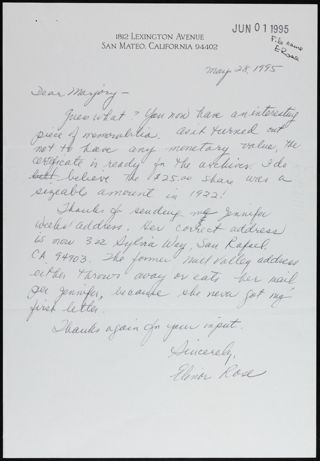 1812 LEXINGTON AVENUE
SAN MATEO, CALIFORNIA 94402
JUN 01 1995
File name
E Rose
May 28, 1995
Dear Marjory –
Guess what? You now have an interesting
piece of memorabilia. But turned out
not to have any monetary value, the
certificate is ready for the archives. I do
believe the $25.00 share was a
sizeable amount in 1922!
Thanks for sending me Jennifer
Weeks' address. Her correct address
is now 302 Sylvia Way, San Rafael
CA 94903. The former Mill Valley address
either throws away or eats her mail
per Jennifer, because she never got my
first letter.
Thanks again for your input.
Sincerely,
Elinor Rose